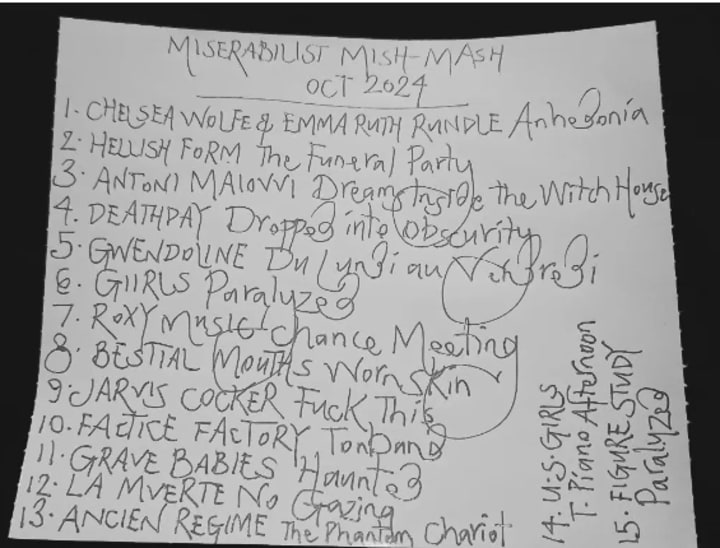 MISERABILIST MISH-MASH
OCT 2024
1. CHELSEA WOLFE & EMMA RUTH RUNDLE Anhedonia
2. HELLISH FORM The Funeral Party
3. ANTONI MAIOVVI Dreams Inside the Witch House
4. DEATHDAY Dropped into Obscurity
5. GWENDOLINE Du Lundi au Vendredi
6. GIIRLS Paralyzed
7. ROXY MUSIC Chance Meeting
8. BESTIAL MOUTHS Worn Skin
9. JARVIS COCKER Fuck This
10. FACTICE FACTORY Tonband
11. GRAVE BABIES Haunted
12. LA MVERTE No Gazing
13. ANCIEN REGIME The Phantom Chariot
14. U.S. GIRLS
T. Piano Afternoon
15. FIGURE STUDY
Paralyzed